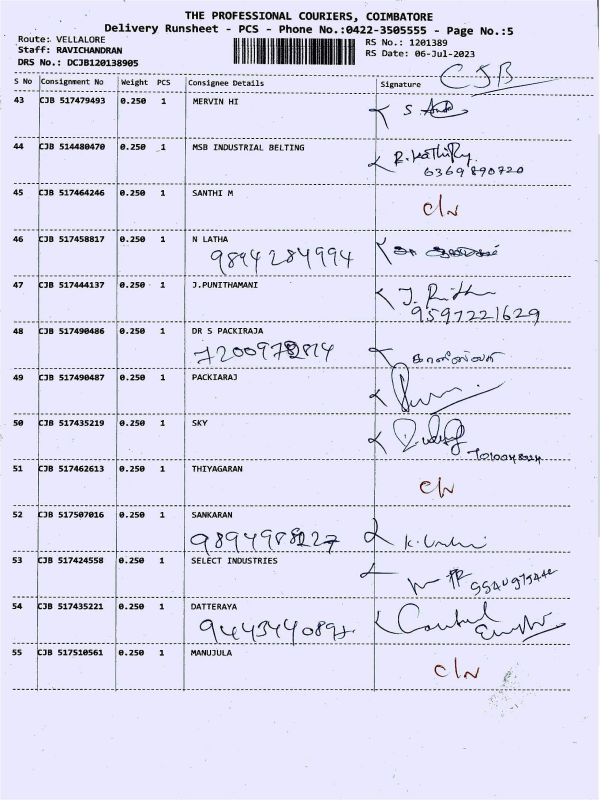 THE PROFESSIONAL COURIERS, COIMBATORE
Delivery Runsheet - PCS - Phone No.:0422-3505555 - Page No.:5
Route: VELLALORE
Staff: RAVICHANDRAN
DRS No.: DCJB120138905
RS No.: 1201389
RS Date: 06-Jul-2023
CJB
S No Consignment No Weight PCS Consignee Details Signature
43 CJB 517479493 0.250 1 MERVIN HI
44 CJB 514480470 0.250 1 MSB INDUSTRIAL BELTING
6369890720
45 CJB 517464246 0.250 1 SANTHI M
C/N
46 CJB 517458817 0.250 1 N LATHA
9894284994
47 CJB 517444137 0.250 1 J.PUNITHAMANI
9597221629
48 CJB 517490486 0.250 1 DR S PACKIRAJA
49 CJB 517490487 0.250 1 PACKIARAJ
50 CJB 517435219 0.250 1 SKY
51 CJB 517462613 0.250 1 THIYAGARAN
C/N
52 CJB 517507016 0.250 1 SANKARAN
53 CJB 517424558 0.250 1 SELECT INDUSTRIES
54 CJB 517435221 0.250 1 DATTERAYA
55 CJB 517510561 0.250 1 MANUJULA
C/N